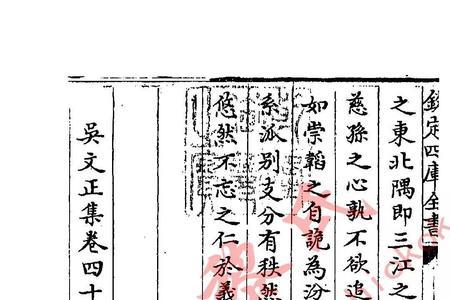 欽定四庫全書
之東北隅即三江之
慈孫之心孰不欲追
如崇韜之自詭為汾
系派别支分有秩然
悠然不忘之仁於義
吳文正集卷四十